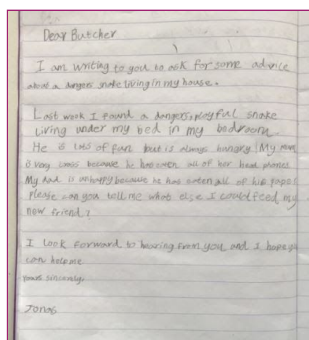 Dear Butcher
I am writing to you to ask for some advice
about a dangers snake living in my house.
Last week I found a dangers, playful snake
living under my bed in my bedroom.
He is lots of fun but is always hungry. My mum
is very cross because he has eaten all of her
My dad is unhappy because he has eaten all of his
Please can you tell me what else I could feed my
new friend?
I look forward to hearing from you and I hope you
can help me
yours sincerely
Jonas